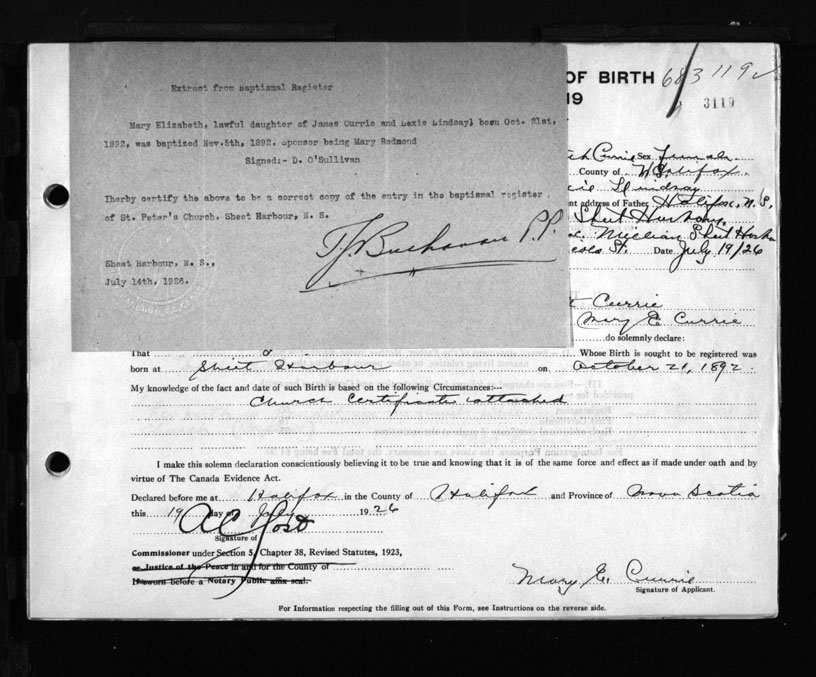 Extract from Baptismal Register
Mary Elizabeth, lawful daughter of James Currie and Lexie Lindsay) born Oct. 21st,
1892, was baptized Nov.5th, 1892, sponsor being Mary Redmond
Signed:- D. O'Sullivan
Ihereby certify the above to be a correct copy of the entry in the baptismal register
of St. Peter's Church, Sheet Harbour, N. S.
T J Buchanan P.P.
Sheet Harbour, N. S.,
July 14th, 1926.
OF BIRTH 683119
19 3119
Currie Sex Female
County of Halifax
Lindsay
address of Father Halifax, N.S.
Sheet Harbour
Sheet Harbor
St. Date July 19/26
Currie
Mary E Currie
do solemnly declare:
That Whose Birth is sought to be registered was
born at Sheet Harbour on October 21, 1892.
My knowledge of the fact and date of such Birth is based on the following Circumstances:—
Church Certificate attached
I make this solemn declaration conscientiously believing it to be true and knowing that it is of the same force and effect as if made under oath and by
virtue of The Canada Evidence Act.
Declared before me at Halifax in the County of Halifax and Province of Nova Scotia
this 19 day of July 1926
Signature of
Commissioner under Section 5, Chapter 38, Revised Statutes, 1923,
or Justice of the Peace in and for the County of
If sworn before a Notary Public affix seal.
Mary E. Currie
Signature of Applicant.
For Information respecting the filling out of this Form, see Instructions on the reverse side.